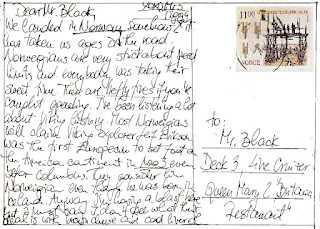 Dear Mr. Black
We landed in Norway
taken us ages on the road.
Norwegians are very strict about speed
limits and everybody was taking their
sweet time. There are hefty fines if you're
caught speeding. I've been listening a lot
about Viking history. Most Norwegians
will claim Viking explorer Leif Erikson
was the first European to set foot on
the America continent in 1003 even
before Columbus. They consider him
Norwegian even though he was born in
Iceland. Anyway I'm having a blast here
but I must say I don't see what the
deal is with brown cheese and cod liver oil
11.00
NORGE
to:
Mr. Black
Deck 3 Live Cruizer
Queen Mary 2 "Britania
Testament"